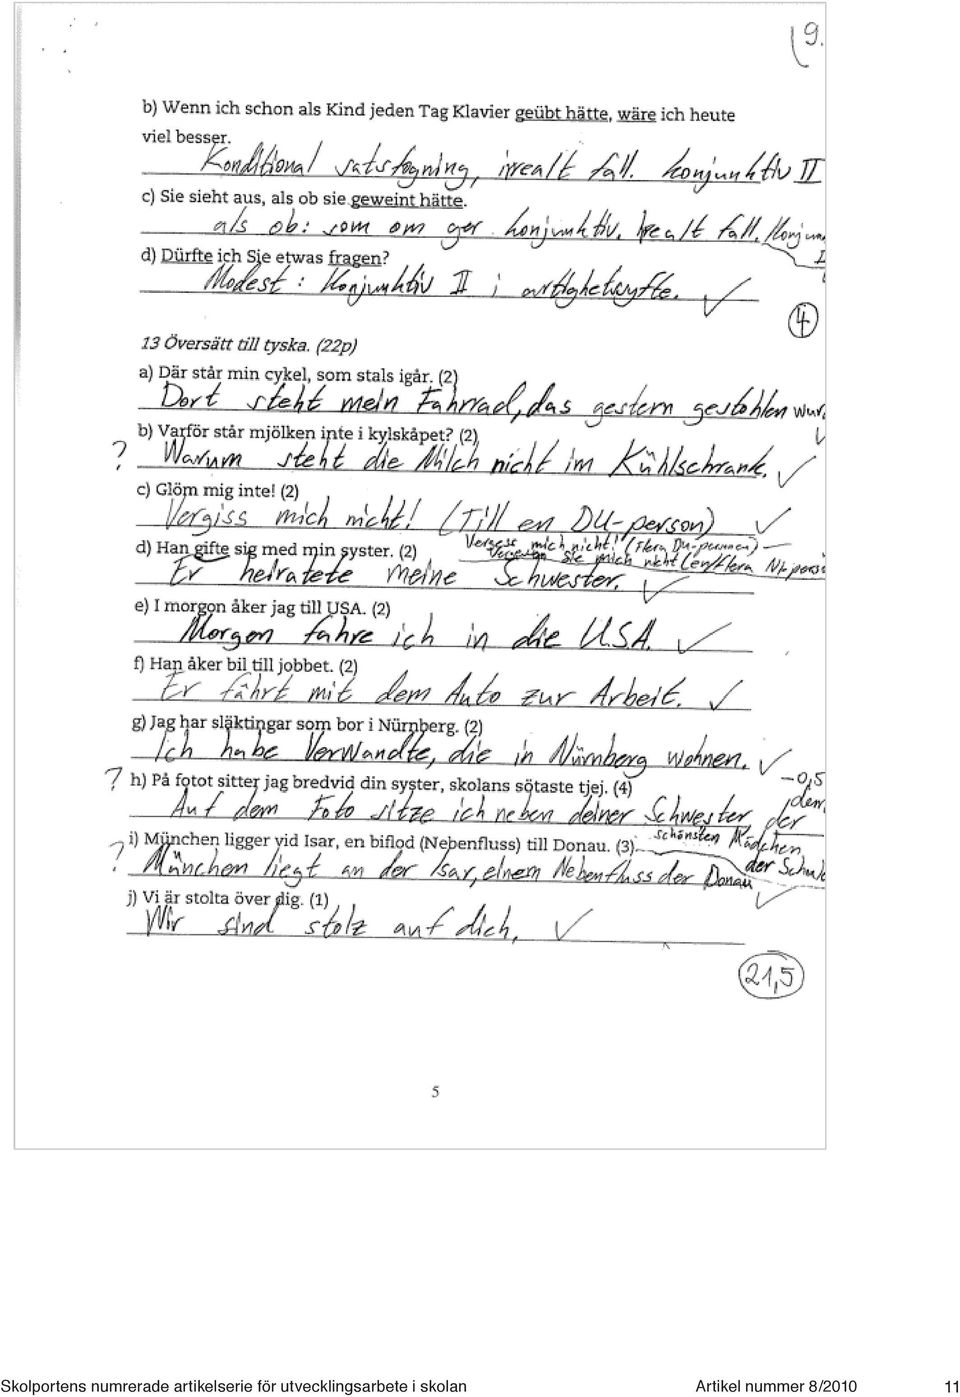 9.
b) Wenn ich schon als Kind jeden Tag Klavier geübt hätte, wäre ich heute
viel besser.
Konditional satsfogning, irrealt fall. konjunktiv II
c) Sie sieht aus, als ob sie geweint hätte.
als ob: som om ger konjunktiv. Irrealt fall. Konjun
I
d) Dürfte ich Sie etwas fragen?
Modest: Konjunktiv II i artighetssyfte. ✓
4
13 Översätt till tyska. (22p)
a) Där står min cykel, som stals igår. (2)
Dort steht mein Fahrrad, das gestern gestohlen wur
✓
b) Varför står mjölken inte i kylskåpet? (2)
? Warum steht die Milch nicht im Kühlschrank. ✓
c) Glöm mig inte! (2)
Vergiss mich nicht! (Till en DU-person) ✓
Vergesst mich nicht! (Flera Du-personer)
d) Han gifte sig med min syster. (2)
Sie mich nicht (en/flera Ni-perso
Er heiratete meine Schwester. ✓
e) I morgon åker jag till USA. (2)
Morgen fahre ich in die USA. ✓
f) Han åker bil till jobbet. (2)
Er fährt mit dem Auto zur Arbeit. ✓
g) Jag har släktingar som bor i Nürnberg. (2)
Ich habe Verwandte, die in Nürnberg wohnen. ✓
-0,5
? h) På fotot sitter jag bredvid din syster, skolans sötaste tjej. (4)
dem
Auf dem Foto sitze ich neben deiner Schwester der
schönsten Mädchen
der Schule
? i) München ligger vid Isar, en biflod (Nebenfluss) till Donau. (3)
München liegt an der Isar, einem Nebenfluss der Donau ✓
j) Vi är stolta över dig. (1)
Wir sind stolz auf dich. ✓
21,5
5
Skolportens numrerade artikelserie för utvecklingsarbete i skolan Artikel nummer 8/2010 11